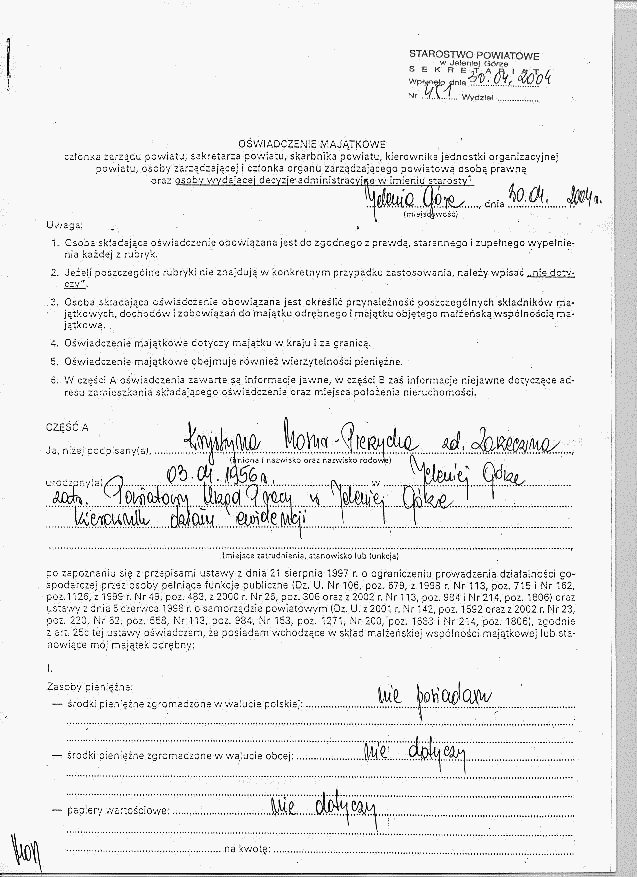 STAROSTWO POWIATOWE
w Jeleniej Górze
S E K R E T A R I A T
Wpłynęło dnia 30.04.2004
Nr 451 Wydział ................
OŚWIADCZENIE MAJĄTKOWE
członka zarządu powiatu, sekretarza powiatu, skarbnika powiatu, kierownika jednostki organizacyjnej
powiatu, osoby zarządzającej i członka organu zarządzającego powiatową osobą prawną
oraz osoby wydającej decyzje administracyjne w imieniu starosty¹
Jelenia Góra, dnia 30.04. 2004 r.
(miejscowość)
Uwaga:
1. Osoba składająca oświadczenie obowiązana jest do zgodnego z prawdą, starannego i zupełnego wypełnie-
nia każdej z rubryk.
2. Jeżeli poszczególne rubryki nie znajdują w konkretnym przypadku zastosowania, należy wpisać „nie doty-
czy”.
3. Osoba składająca oświadczenie obowiązana jest określić przynależność poszczególnych składników ma-
jątkowych, dochodów i zobowiązań do majątku odrębnego i majątku objętego małżeńską wspólnością ma-
jątkową.
4. Oświadczenie majątkowe dotyczy majątku w kraju i za granicą.
5. Oświadczenie majątkowe obejmuje również wierzytelności pieniężne.
6. W części A oświadczenia zawarte są informacje jawne, w części B zaś informacje niejawne dotyczące ad-
resu zamieszkania składającego oświadczenie oraz miejsca położenia nieruchomości.
CZĘŚĆ A
Ja, niżej podpisany(a), Krystyna
(imiona i nazwisko oraz nazwisko rodowe)
urodzony(a) 03.04.1956 r. w Jeleniej Górze
zatr. Powiatowy Urząd Pracy w Jeleniej Górze
kierownik działu ewidencji
(miejsce zatrudnienia, stanowisko lub funkcja)
po zapoznaniu się z przepisami ustawy z dnia 21 sierpnia 1997 r. o ograniczeniu prowadzenia działalności go-
spodarczej przez osoby pełniące funkcje publiczne (Dz. U. Nr 106, poz. 679, z 1998 r. Nr 113, poz. 715 i Nr 162,
poz. 1126, z 1999 r. Nr 49, poz. 483, z 2000 r. Nr 26, poz. 306 oraz z 2002 r. Nr 113, poz. 984 i Nr 214, poz. 1806) oraz
ustawy z dnia 5 czerwca 1998 r. o samorządzie powiatowym (Dz. U. z 2001 r. Nr 142, poz. 1592 oraz z 2002 r. Nr 23,
poz. 220, Nr 62, poz. 558, Nr 113, poz. 984, Nr 153, poz. 1271, Nr 200, poz. 1688 i Nr 214, poz. 1806), zgodnie
z art. 25c tej ustawy oświadczam, że posiadam wchodzące w skład małżeńskiej wspólności majątkowej lub sta-
nowiące mój majątek odrębny:
I.
Zasoby pieniężne:
— środki pieniężne zgromadzone w walucie polskiej: nie posiadam
— środki pieniężne zgromadzone w walucie obcej: nie dotyczy
— papiery wartościowe: nie dotyczy
na kwotę: